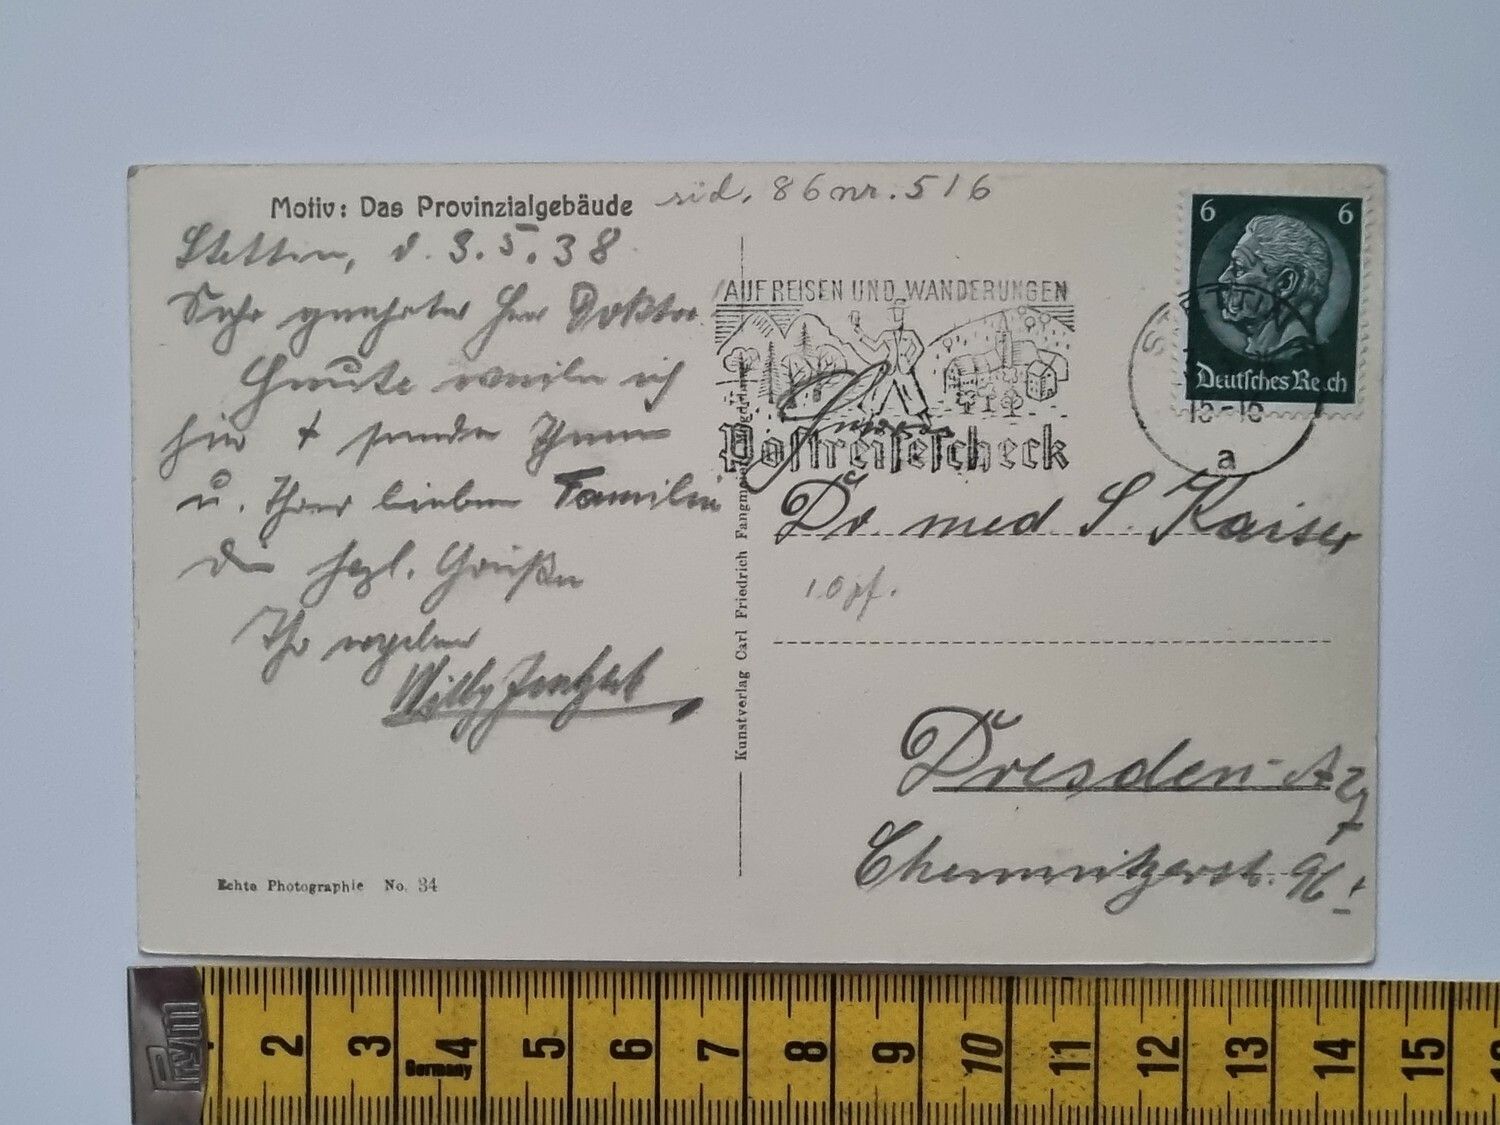 Motiv: Das Provinzialgebäude
sid. 86 nr. 516
Stettin, d. 3.5.38
Sehr geehrter Herr Doktor
Heute weile ich
hier + sende Ihnen
u. Ihrer lieben Familie
die hzl. Grüße
Ihr ergebener
Willy
Echte Photographie No. 34
Kunstverlag Carl Friedrich Fangmeier, Magdeburg
AUF REISEN UND WANDERUNGEN
Postreisescheck
6 6
Deutsches Reich
15-16
a
Herrn
Dr. med S. Kaiser
10 pf.
Dresden-A 27
Chemnitzerstr. 96 I
Prym
2 3 4 5 6 7 8 9 10 11 12 13 14 15
Germany